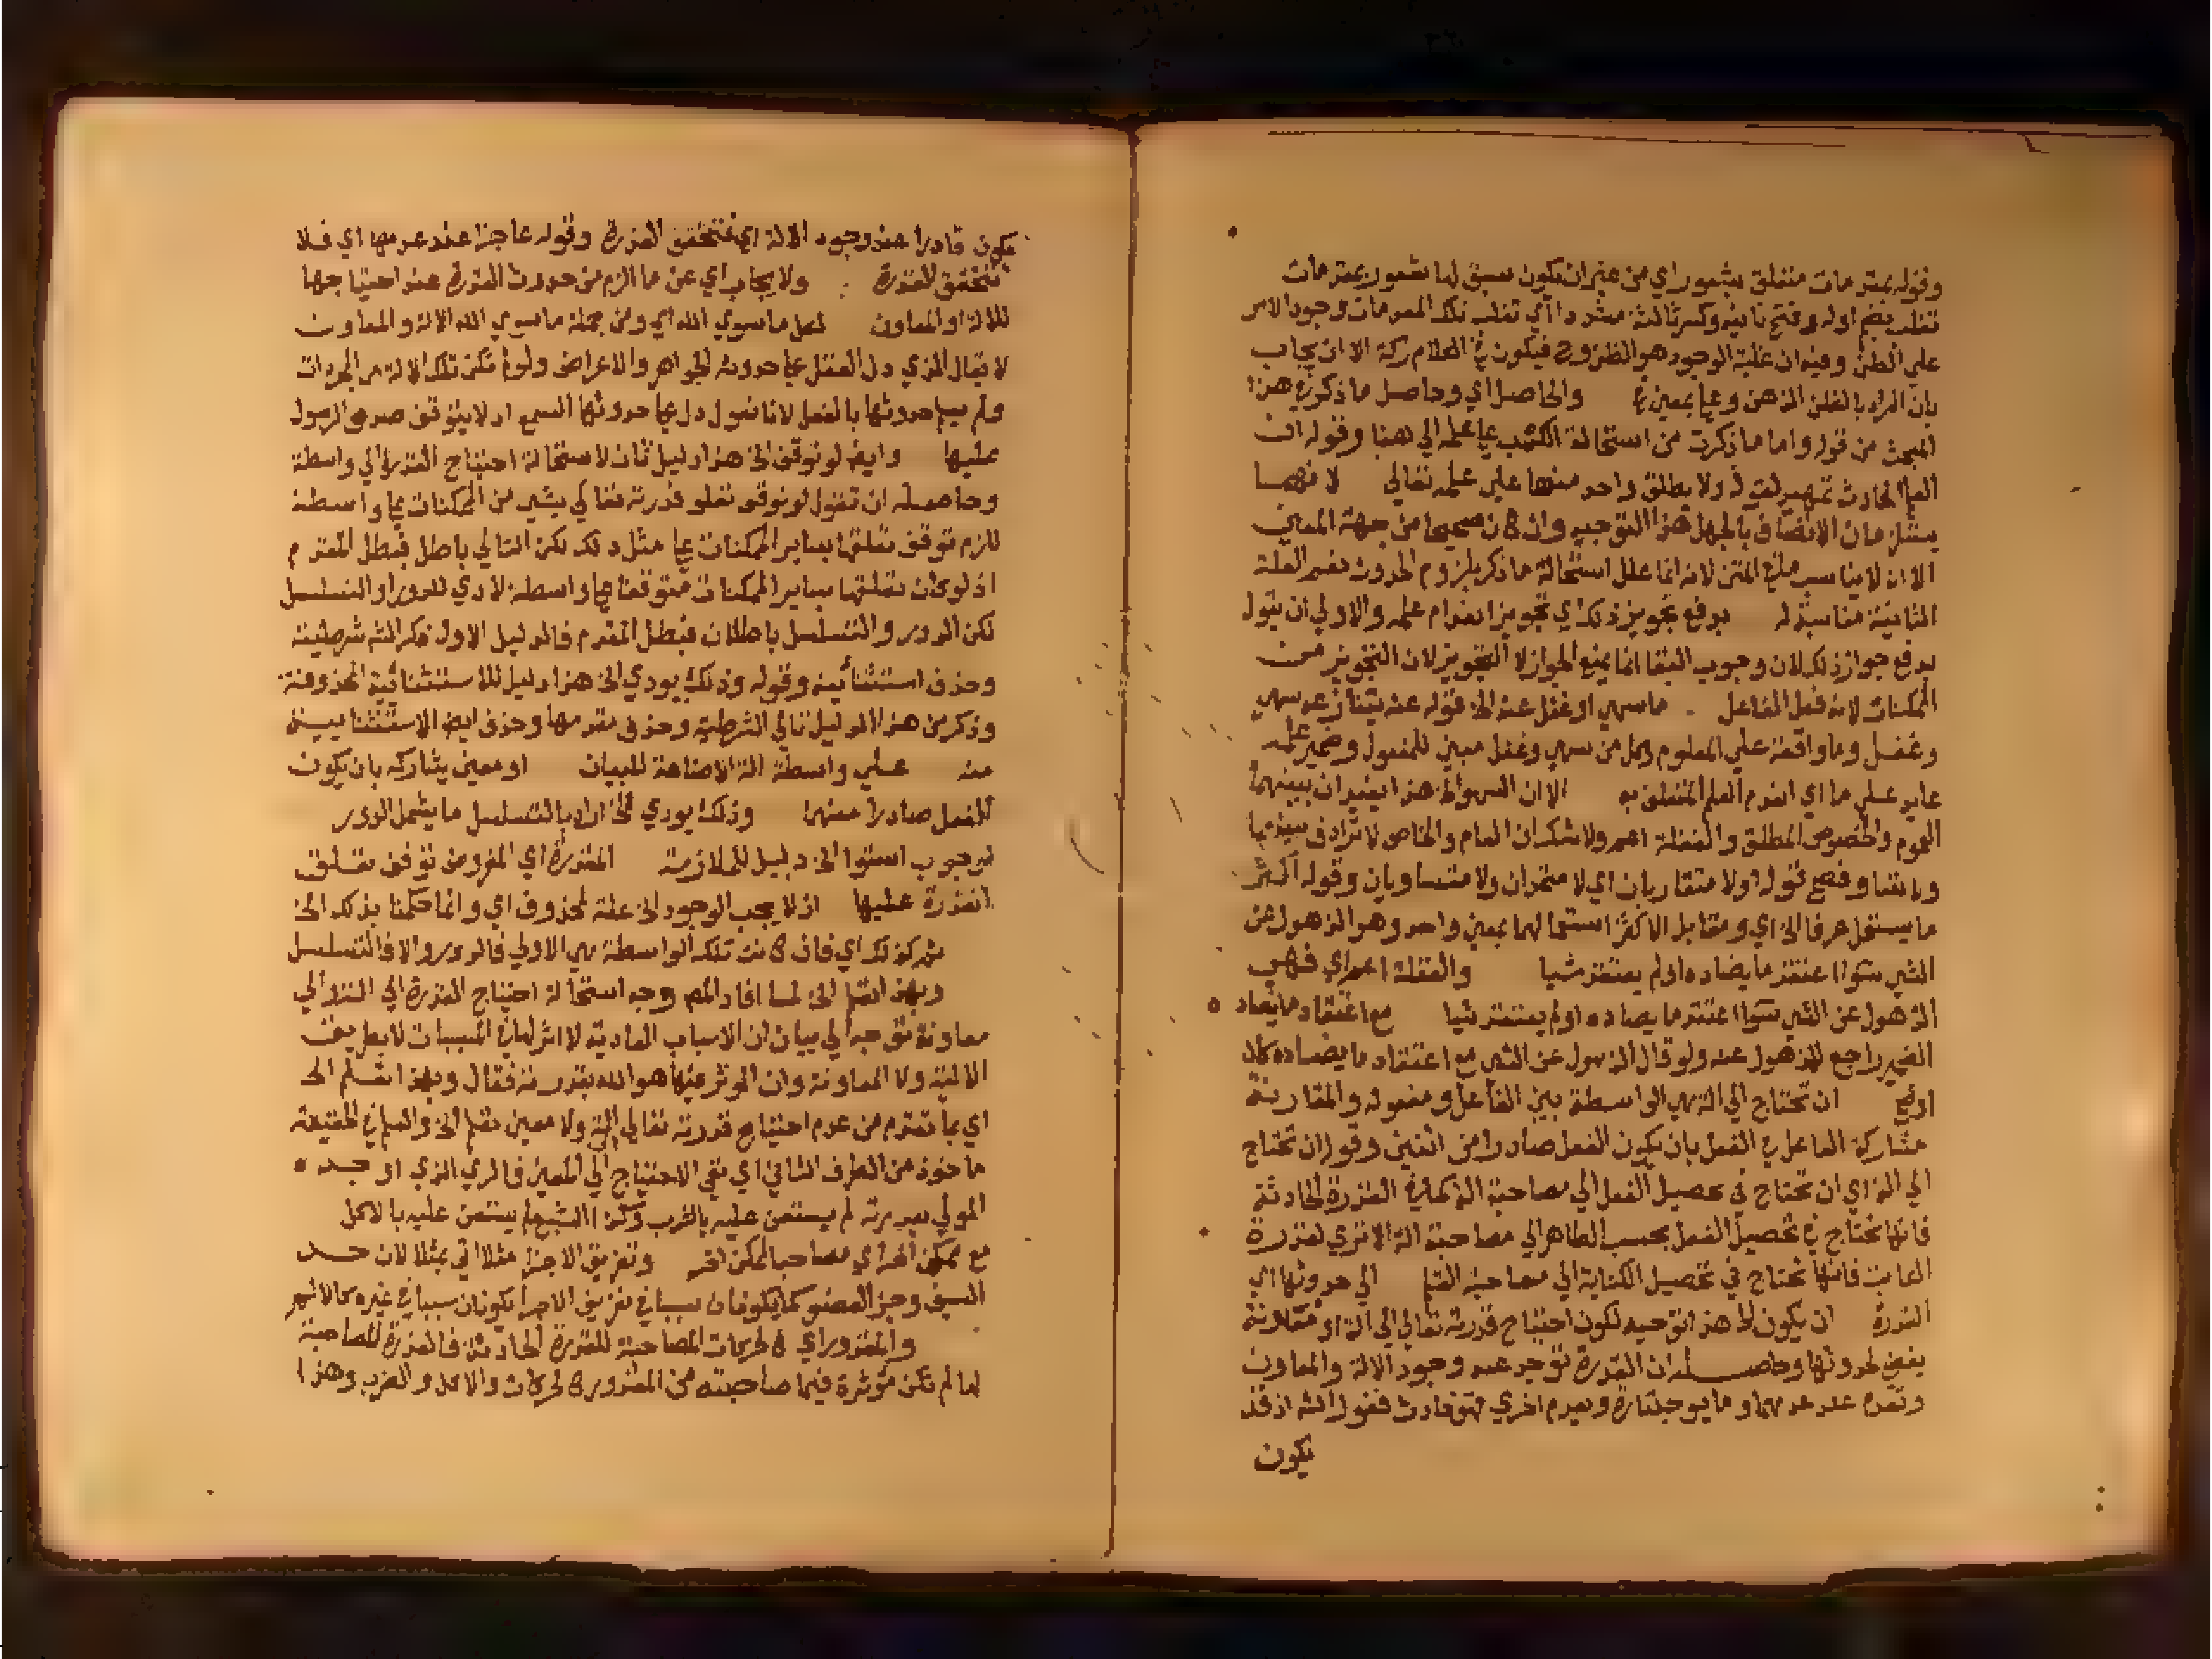 وقوله بمقدمات متعلق بشعور اي من غير ان يكون سبق لها شعور بمقدمات
تغلب بضم اوله وفتح ثانيه وكسر ثالثه مشددا اي تغلب تلك المقدمات وجود الامر
علي الظن وفيه ان غلبة الوجود هو الظن وح فيكون في الكلام ركة الا ان يجاب
بان المراد بالظن الذهن وعلي بمعني في والحاصل اي وحاصل ما ذكر في هذا
المبحث من قوله واما ما ذكرت من استحالة الكسب علي علمه الي هنا وقوله ان
العلم الحادث تمهيد لقوله ولا يطلق واحد منهما علي علمه تعالي لانهما
يستلزمان الاتصاف بالجهل هذا التوجيه وان كان صحيحا من جهة المعني
الا انه لا يناسب صنيع المتن لانه انما علل استحالة ما ذكر بلزوم الحدوث نعم العلة
الثانية مناسبة له يدفع تجويز ذلك اي تجويز انعدام علمه والاولي ان يقول
يدفع جواز ذلك لان وجوب البقا انما يمنع الجواز لا التجويز لان التجويز من
الممكنات لانه فعل الفاعل ما سهي او غفل عنه الخ قوله عنه يتنازعه سهي
وغفل وما واقعة علي المعلوم وكل من سهي وغفل مبني للمفعول وضمير علمه
عايد علي ما اي انعدم العلم المتعلق به الا ان السهو الخ هذا يفيد ان بينهما
العموم والخصوص المطلق والغفلة اعم ولا شك ان العام والخاص لا ترادف بينهما
ولا تساو فصح قوله اولا متقاربان اي لا متحدان ولا متساويان وقوله اكثر
ما يستعمل عرفا الخ اي ومقابل الاكثر استعمالهما بمعني واحد وهو الذهول عن
الشي سوا اعتقد ما يضاده او لم يعتقد شيا والغفلة اعم اي فهي
الذهول عن الشي سوا اعتقد ما يضاده او لم يعتقد شيا مع اعتقاد ما يضاده
الضمير راجع للذهول عنه ولو قال الذهول عن الشي مع اعتقاد ما يضاده كان
اوضح ان تحتاج الي الة هي الواسطة بين الفاعل ومفعوله والمقارنة
مشاركة الفاعل في الفعل بان يكون الفعل صادرا من اثنين وقوله ان تحتاج
الي الة اي ان تحتاج في تحصيل الفعل الي مصاحبة الة كما في القدرة الحادثة
فانها تحتاج في تحصيل الفعل بحسب الظاهر الي مصاحبة الة الا تري لقدرة
الكاتب فانها تحتاج في تحصيل الكتابة الي مصاحبة القلم الي حدوثها اي
القدرة ان يكون الخ هذا توجيه لكون احتياج قدرته تعالي الي الة او مقارنة
يفضي لحدوثها وحاصله ان القدرة توجد عند وجود الالة والمعاون
وتعدم عند عدمهما وما يوجد تارة ويعدم اخري فهو حادث فقول الش اذ قد
يكون
يكون قادرا عند وجود الالة اي فتتحقق القدرة وقوله عاجزا عند عدمها اي فلا
تتحقق القدرة ولا يجاب اي عن ما الزم من حدوث القدرة عند احتياجها
للالة او المعاون لعل ما سوي الله اي ومن جملة ما سوي الله الالة والمعاون
لا يقال الذي دل العقل علي حدوثه الجواهر والاعراض ولم لم تكن تلك الالة من المجردات
ولم يسلم حدوثها بالفعل لانا نقول دل علي حدوثها السمع اذ لا يتوقف صدق الرسول
عليها وايضا لو توقف الخ هذا دليل ثان لاستحالة احتياج القدرة الي واسطة
وحاصله ان تقول لو توقف تعلق قدرته تعالي بشي من الممكنات علي واسطة
للزم توقف تعلقها بساير الممكنات علي مثل ذلك لكن التالي باطل فبطل المقدم
اذ لو كان تعلقها بساير الممكنات متوقفا علي واسطة لادي للدور او التسلسل
لكن الدور والتسلسل باطلان فبطل المقدم فالدليل الاول ذكر الش شرطيته
وحذف استثنائيته وقوله وذلك يودي الخ هذا دليل للاستثنائية المحذوفة
وذكر من هذا الدليل تالي الشرطية وحذف مقدمها وحذف ايضا الاستثنايية
منه علي واسطة الة الاضافة للبيان او معين يشاركه بان يكون
الفعل صادرا منهما وذلك يودي الخ اراد بالتسلسل ما يشمل الدور
لوجوب استوا الخ دليل للملازمة المقدرة اي المفروض توقف تعلق
القدرة عليها اذ لا يجب الوجود الخ علة لمحذوف اي وانما حكمنا بذلك الخ
ثم كذلك اي فان كانت تلك الواسطة هي الاولي فالدور والا فالتسلسل
وبهذا تعلم الخ لما افاد المص وجه استحالة احتياج القدرة الي الة والي
معاونة توجه الي بيان ان الاسباب العادية لا اثر لها في المسببات لا بطريق
الالية ولا المعاونة وان الموثر عندها هو الله بقدرته فقال وبهذا تعلم الخ
اي بما تقدم من عدم احتياج قدرته تعالي الي الة ولا معين تعلم الخ والعلم في الحقيقة
ماخوذ من الطرف الثاني اي نفي الاحتياج الي المعين فالري الذي اوجده
المولي بقدرته لم يستعن عليه بالشرب وكذا الشبع لم يستعن عليه بالاكل
مع ممكن اخر اي مصاحبا لممكن اخر وتفريق الاجزا مثلا اتي بمثلا لان حد
السيف وحز العضو كما يكونان سببا في تفريق الاجزا يكونان سببا في غيره كالالم
والمقدور اي كالحركات المصاحبة للقدرة الحادثة فالقدرة المصاحبة
لها لم تكن موثرة فيما صاحبته من المقدور كالحركات والاكل والضرب وهذا